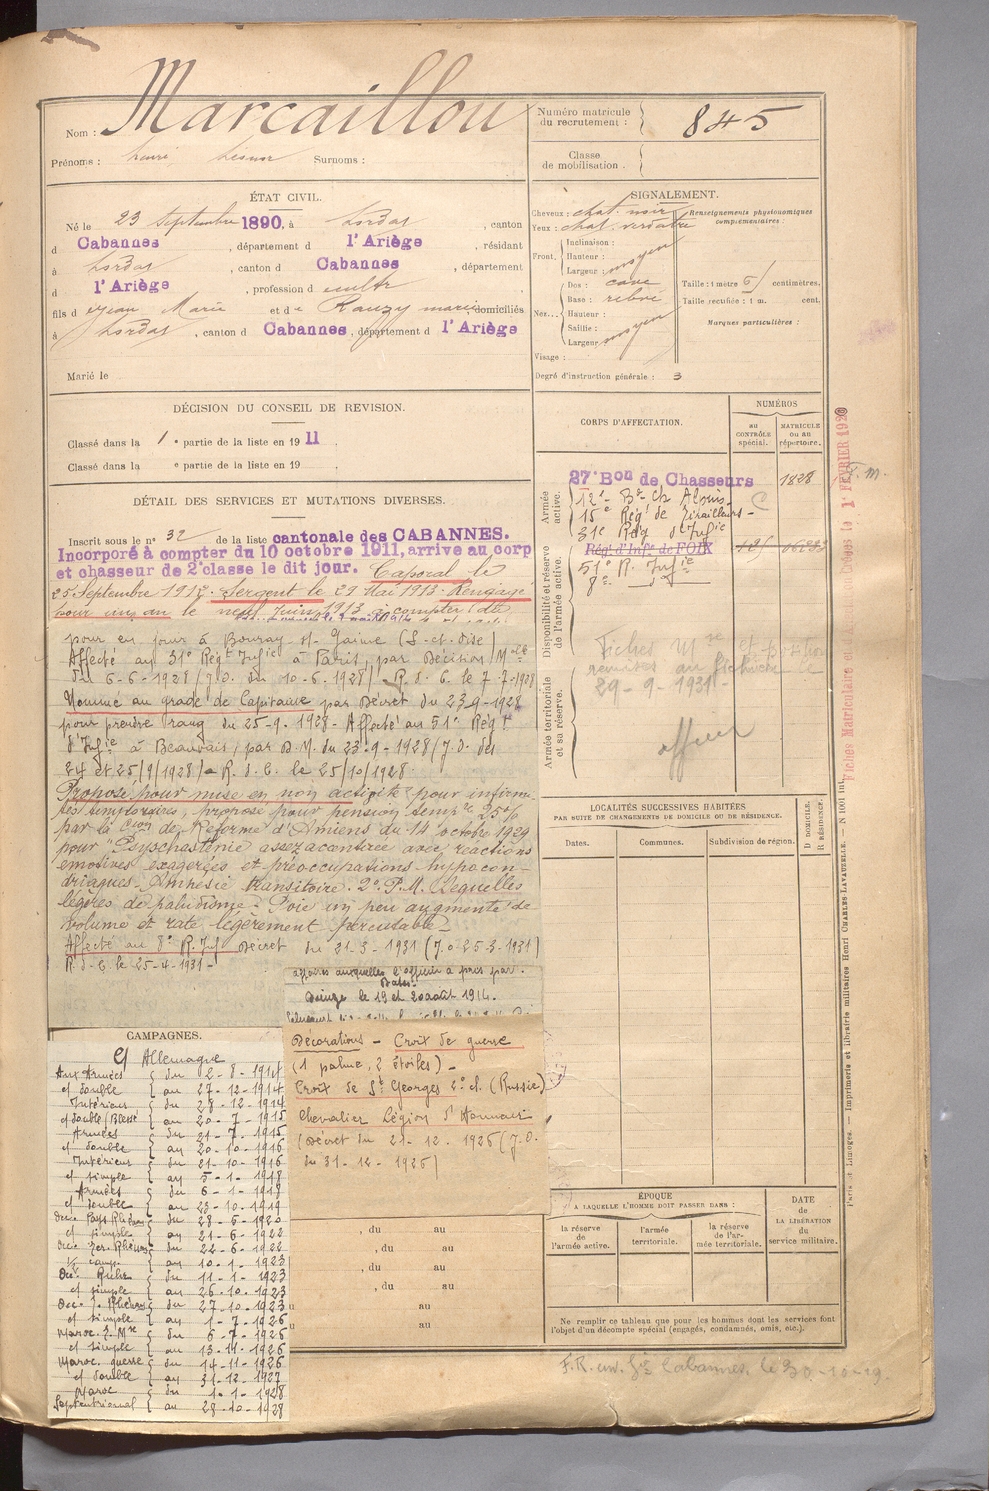 Nom : Marcaillou
Prénoms : Henri Surnoms :
Numéro matricule du recrutement : 845
Classe de mobilisation.
ÉTAT CIVIL.
Né le 23 Septembre 1890, à Lordat, canton
d Cabannes, département d l'Ariège, résidant
à Lordat, canton d Cabannes, département
d l'Ariège, profession d cultr
fils d Jean Marie et d e Rauzy marie domiciliés
à Lordat, canton d Cabannes, département d l'Ariège
Marié le
SIGNALEMENT.
Cheveux : chat. noir
Yeux : chat. verdatre
Renseignements physionomiques complémentaires :
Front.
Inclinaison :
Hauteur :
Largeur : moyen
Nez...
Dos : cave
Base : relevé
Hauteur :
Saillie :
Largeur moyen
Visage :
Taille : 1 mètre 61 centimètres.
Taille rectifiée : 1 m. cent.
Marques particulières :
Degré d'instruction générale : 3
DÉCISION DU CONSEIL DE REVISION.
Classé dans la 1e partie de la liste en 1911.
Classé dans la e partie de la liste en 19
DÉTAIL DES SERVICES ET MUTATIONS DIVERSES.
Inscrit sous le n° 32 de la liste cantonale des CABANNES.
Incorporé à compter du 10 octobre 1911, arrive au corp
et chasseur de 2e classe le dit jour. Caporal le
25 Septembre 1912. Sergent le 29 Mai 1913. Rengagé
pour un an le neuf Juin 1913 à compter du
pour en jouir à Bouray st-Jaime (S. et. Oise)
Affecté au 31e Régt Infie à Paris, par Décision Mlle
du 6-6-1928 (J.O. du 10-6-1928) R. d. C. le 7-7-1928
Nommé au grade de Capitaine par Décret du 23-9-1928
pour prendre rang du 25-9-1928 - Affecté au 51e Régt
d'Infie à Beauvais, par D.M. du 23-9-1928 (J.O. des
24 et 25/9/1928) - R. d. C. le 25/10/1928.
Proposé pour mise en non activité pour infirmi-
tés temporaires, proposé pour pension tempre 25%
par la Cion de Réforme d'Amiens du 14 octobre 1929
pour "Psychasténie assez accentuée avec réactions
émotives exagérées et préoccupations hypocon-
driaques - Amnésie transitoire. 2° P.M. Sequelles
légères de paludisme - Foie un peu augmenté de
volume et rate légèrement percutable -
Affecté au 8e R. Inf Décret du 21-3-1931 (J.O. 25-3-1931)
R. d. C. le 25-4-1931 -
affaires auxquelles l'officier a pris part.
Dieuze le 19 et 20 août 1914.
CORPS D'AFFECTATION.
NUMÉROS
au CONTRÔLE spécial.
MATRICULE ou au répertoire.
Armée active.
Disponibilité et réserve de l'armée active.
Armée territoriale et sa réserve.
27e Bon de Chasseurs 1828
12e Bn Ch Alpins -
15e Régt de Tirailleurs -
31e Rég d'Infie
Régt d'Infie de FOIX
51e R. Infie
8e d°
Fiches Mre et position
remises au fichier le
29-9-1931
officier
1er FÉVRIER 1920
LOCALITÉS SUCCESSIVES HABITÉES
PAR SUITE DE CHANGEMENTS DE DOMICILE OU DE RÉSIDENCE.
Dates. Communes. Subdivision de région.
D DOMICILE. R RÉSIDENCE.
CAMPAGNES.
C/ Allemagne
Aux Armées du 2-8-1914
C/ double au 27-12-1914
Intérieur du 28-12-1914
C/ double (Blessé au 20-7-1915
Armées du 21-7-1915
C/ double au 20-10-1916
Intérieur du 21-10-1916
C/ simple au 5-1-1918
Armées du 6-1-1918
C/ double au 23-10-1919
Occ. Pays Rhénans du 28-6-1920
C/ simple au 21-6-1922
Occ. Ter. Rhénans du 22-6-1922
1/2 camp. au 10-1-1923
Occ. Ruhr du 11-1-1923
C/ simple au 26-10-1923
Occ. T. Rhénans du 27-10-1923
C/ simple au 1-7-1926
Maroc du 6-7-1926
C/ simple au 13-11-1926
Maroc guerre du 14-11-1926
C/ double au 31-12-1927
Maroc du 1-1-1928
Septentrional au 23-10-1928
Décorations - Croix de guerre
(1 palme, 2 étoiles) -
Croix de St Georges 2e cl. (Russie)
Chevalier Légion d'Honneur
(Décret du 21-12-1926 (J.O.
du 31-12-1926)
, du au
, du au
, du au
, du au
au
au
ÉPOQUE
A LAQUELLE L'HOMME DOIT PASSER DANS :
la réserve de l'armée active.
l'armée territoriale.
la réserve de l'armée territoriale.
DATE DE LA LIBÉRATION DU service militaire.
Ne remplir ce tableau que pour les hommes dont les services font
l'objet d'un décompte spécial (engagés, condamnés, omis, etc.).
Paris et Limoges. — Imprimerie et librairie militaires Henri CHARLES-LAVAUZELLE.